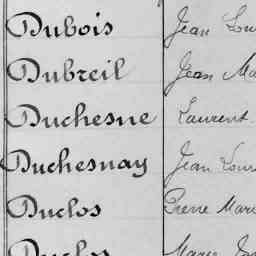 Dubois Jean Lou
Dubreil Jean Ma
Duchesne Laurent
Duchesnay Jean Lou
Duclos Pierre Mari
Duclos Marie